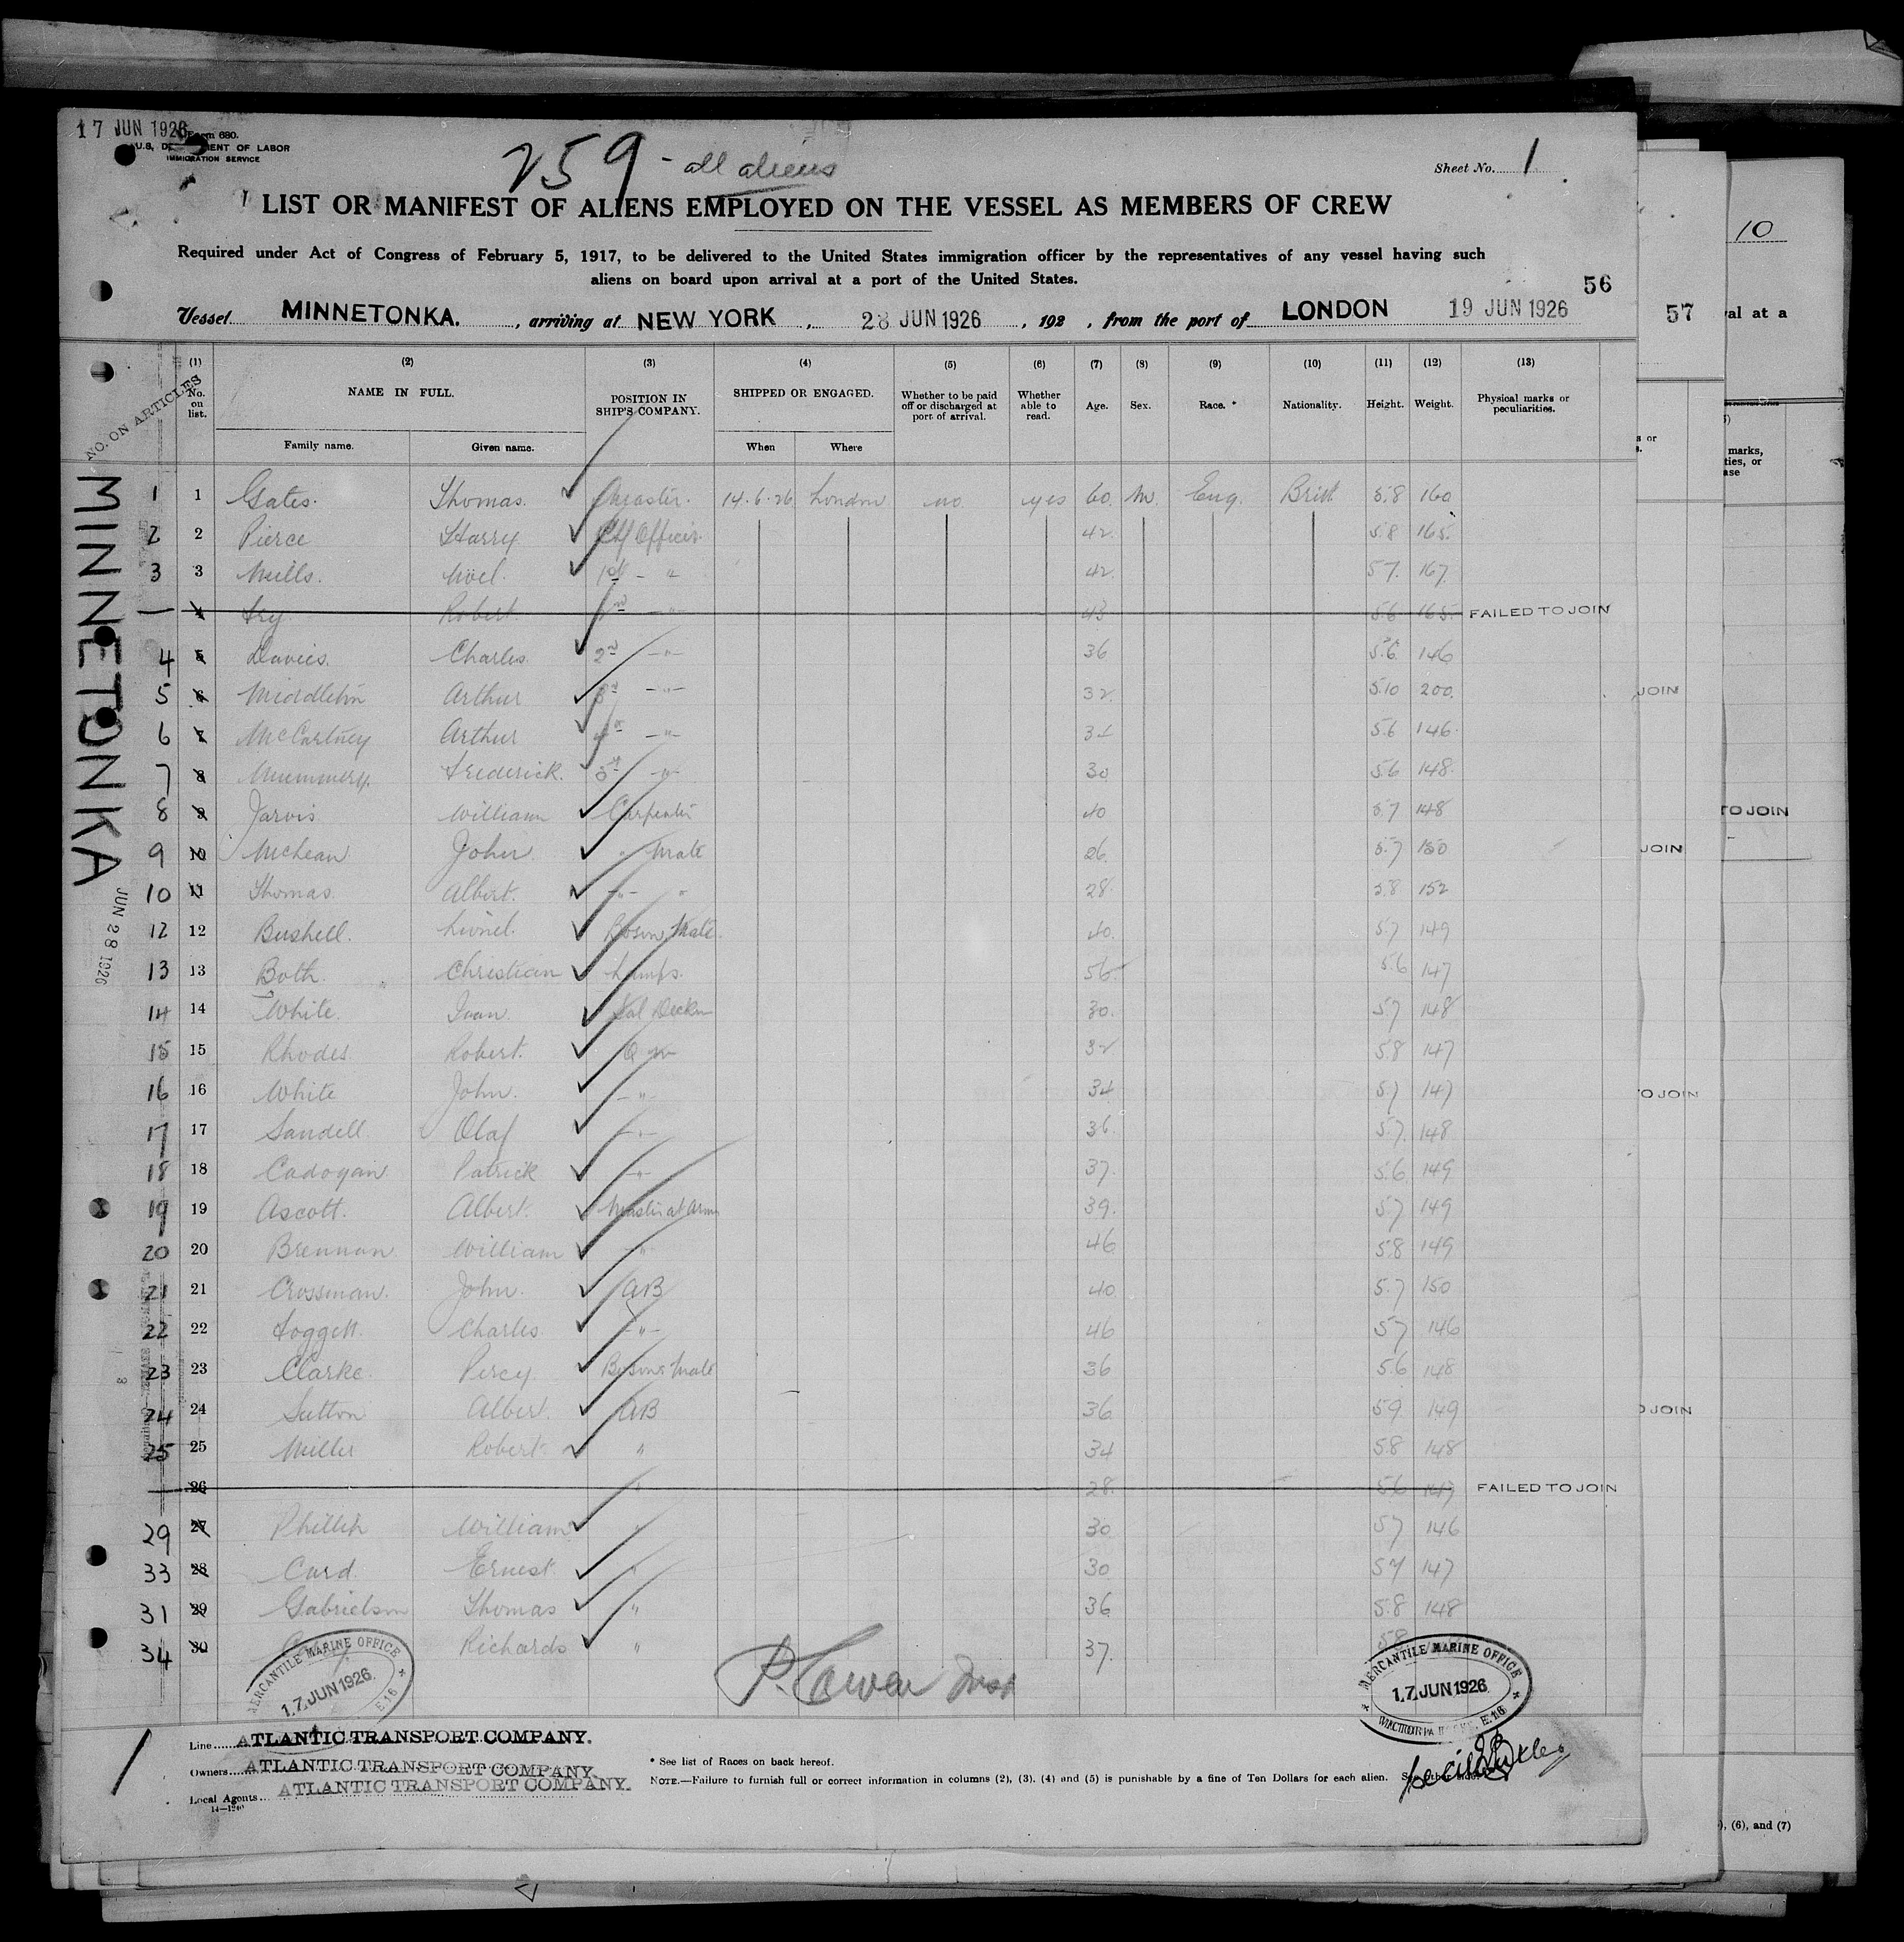 17 JUN 1926
Form 680.
U.S. DEPARTMENT OF LABOR
IMMIGRATION SERVICE
259 - all aliens
Sheet No. 1
LIST OR MANIFEST OF ALIENS EMPLOYED ON THE VESSEL AS MEMBERS OF CREW
Required under Act of Congress of February 5, 1917, to be delivered to the United States immigration officer by the representatives of any vessel having such
aliens on board upon arrival at a port of the United States.
56
Vessel MINNETONKA. , arriving at NEW YORK , 28 JUN 1926 , 192 , from the port of LONDON 19 JUN 1926
NO. ON ARTICLES
(1) No. on list.
(2) NAME IN FULL.
Family name. Given name.
(3) POSITION IN SHIP'S COMPANY.
(4) SHIPPED OR ENGAGED.
When Where
(5) Whether to be paid off or discharged at port of arrival.
(6) Whether able to read.
(7) Age.
(8) Sex.
(9) Race. *
(10) Nationality.
(11) Height.
(12) Weight.
(13) Physical marks or peculiarities.
MINNETONKA
JUN 28 1926
1 1 Gates. Thomas. Master. 14.6.26 London no yes 60. M. Eng. Brit 5.8 160
2 2 Pierce Harry Chf Officer. 42. 5.8 165.
3 3 Mills. Noel. 1st - " 42. 5.7. 167.
— 4 Fry Robert. 2nd - " - 43 5.6 165. FAILED TO JOIN
4 5 Davies. Charles. 2nd - " - 36 5.6. 146
5 6 Middleton Arthur 3rd - " - 32. 5.10 200.
6 7 McCartney Arthur - " - 5.6 146.
7 8 Mummery. Frederick. - " - 30 5.6 148.
8 9 Jarvis William Carpenter 40 5.7 148
9 10 McLean John. " Mate 26. 5.7 150
10 11 Thomas. Albert. - " - " 28. 5.8 152
12 12 Bushell. Lionel. Bosuns Mate. 40. 5.7 149
13 13 Both. Christian Lamps. 56 5.6 147
14 14 White. Ivan. 30. 5.7 148
15 15 Rhodes Robert. 32 5.8 147
16 16 White John. - " - 34 5.7 147
17 17 Sandell. Olaf - " - 36. 5.7. 148
18 18 Cadogan Patrick - " - 37. 5.6 149
19 19 Ascott. Albert. Master at Arms 39. 5.7 149
20 20 Brennan William - " - 46 5.8 149
21 21 Crossman. John. AB 40 5.7 150
22 22 Foggett. Charles - " - 46 5.7 146
23 23 Clarke. Percy. Bosuns Mate 36 5.6 148
24 24 Sutton Albert. AB 36 5.9. 149
25 25 Miller Robert. " 34 5.8 148
26 " 28. 5.6 147 FAILED TO JOIN
29 27 Phillip William " 30 5.7 146
33 28 Card. Ernest. " 30 5.7 147
31 29 Gabrielson Thomas " 36 5.8 148
34 30 Richards " 37. 5.8
MERCANTILE MARINE OFFICE
17 JUN 1926
E.16
MERCANTILE MARINE OFFICE
17 JUN 1926
E.16
Line ATLANTIC TRANSPORT COMPANY.
Owners ATLANTIC TRANSPORT COMPANY.
Local Agents ATLANTIC TRANSPORT COMPANY.
14—1240
* See list of Races on back hereof.
NOTE.—Failure to furnish full or correct information in columns (2), (3), (4) and (5) is punishable by a fine of Ten Dollars for each alien. See other side.
57
10
val at a
JOIN
TO JOIN
JOIN
O JOIN
JOIN
marks,
ties, or
ase
s or
), (6), and (7)